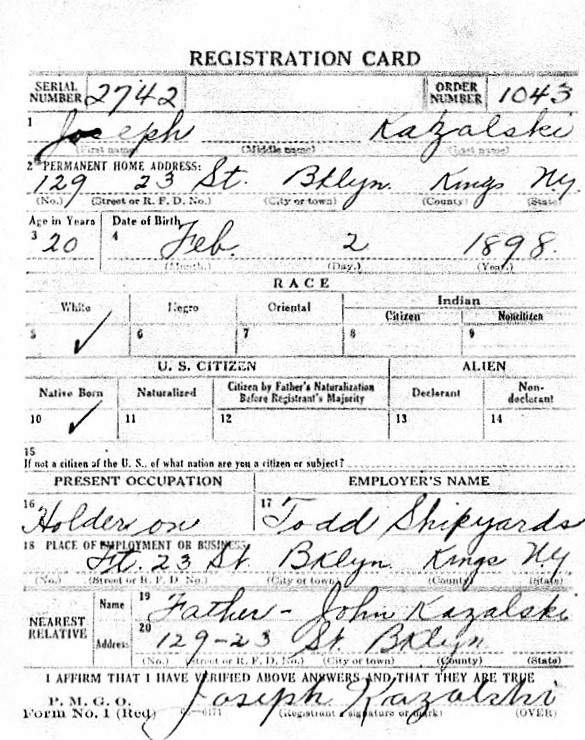 REGISTRATION CARD
SERIAL NUMBER 2742 ORDER NUMBER 1043
1 Joseph Kazalski
(First name) (Middle name) (Last name)
2 PERMANENT HOME ADDRESS:
129 23 St. Bklyn. Kings Ny.
(No.) (Street or R. F. D. No.) (City or town) (County) (State)
Age in Years Date of Birth
3 20 4 Feb. 2 1898.
(Month.) (Day.) (Year.)
RACE
White Negro Oriental Indian
Citizen Noncitizen
5 ✓ 6 7 8 9
U. S. CITIZEN ALIEN
Native Born Naturalized Citizen by Father's Naturalization Before Registrant's Majority Declarant Non-declarant
10 ✓ 11 12 13 14
15
If not a citizen of the U. S., of what nation are you a citizen or subject?
PRESENT OCCUPATION EMPLOYER'S NAME
16 Holder on 17 Todd Shipyards
18 PLACE OF EMPLOYMENT OR BUSINESS:
Ft. 23 St. Bklyn. Kings Ny
(No.) (Street or R. F. D. No.) (City or town) (County) (State)
NEAREST RELATIVE Name 19 Father - John Kazalski
Address 20 129-23 St. Bklyn
(No.) (Street or R. F. D. No.) (City or town) (County) (State)
I AFFIRM THAT I HAVE VERIFIED ABOVE ANSWERS AND THAT THEY ARE TRUE
P. M. G. O.
Form No. 1 (Red) Joseph Kazalski
(Registrant's signature or mark) (OVER)